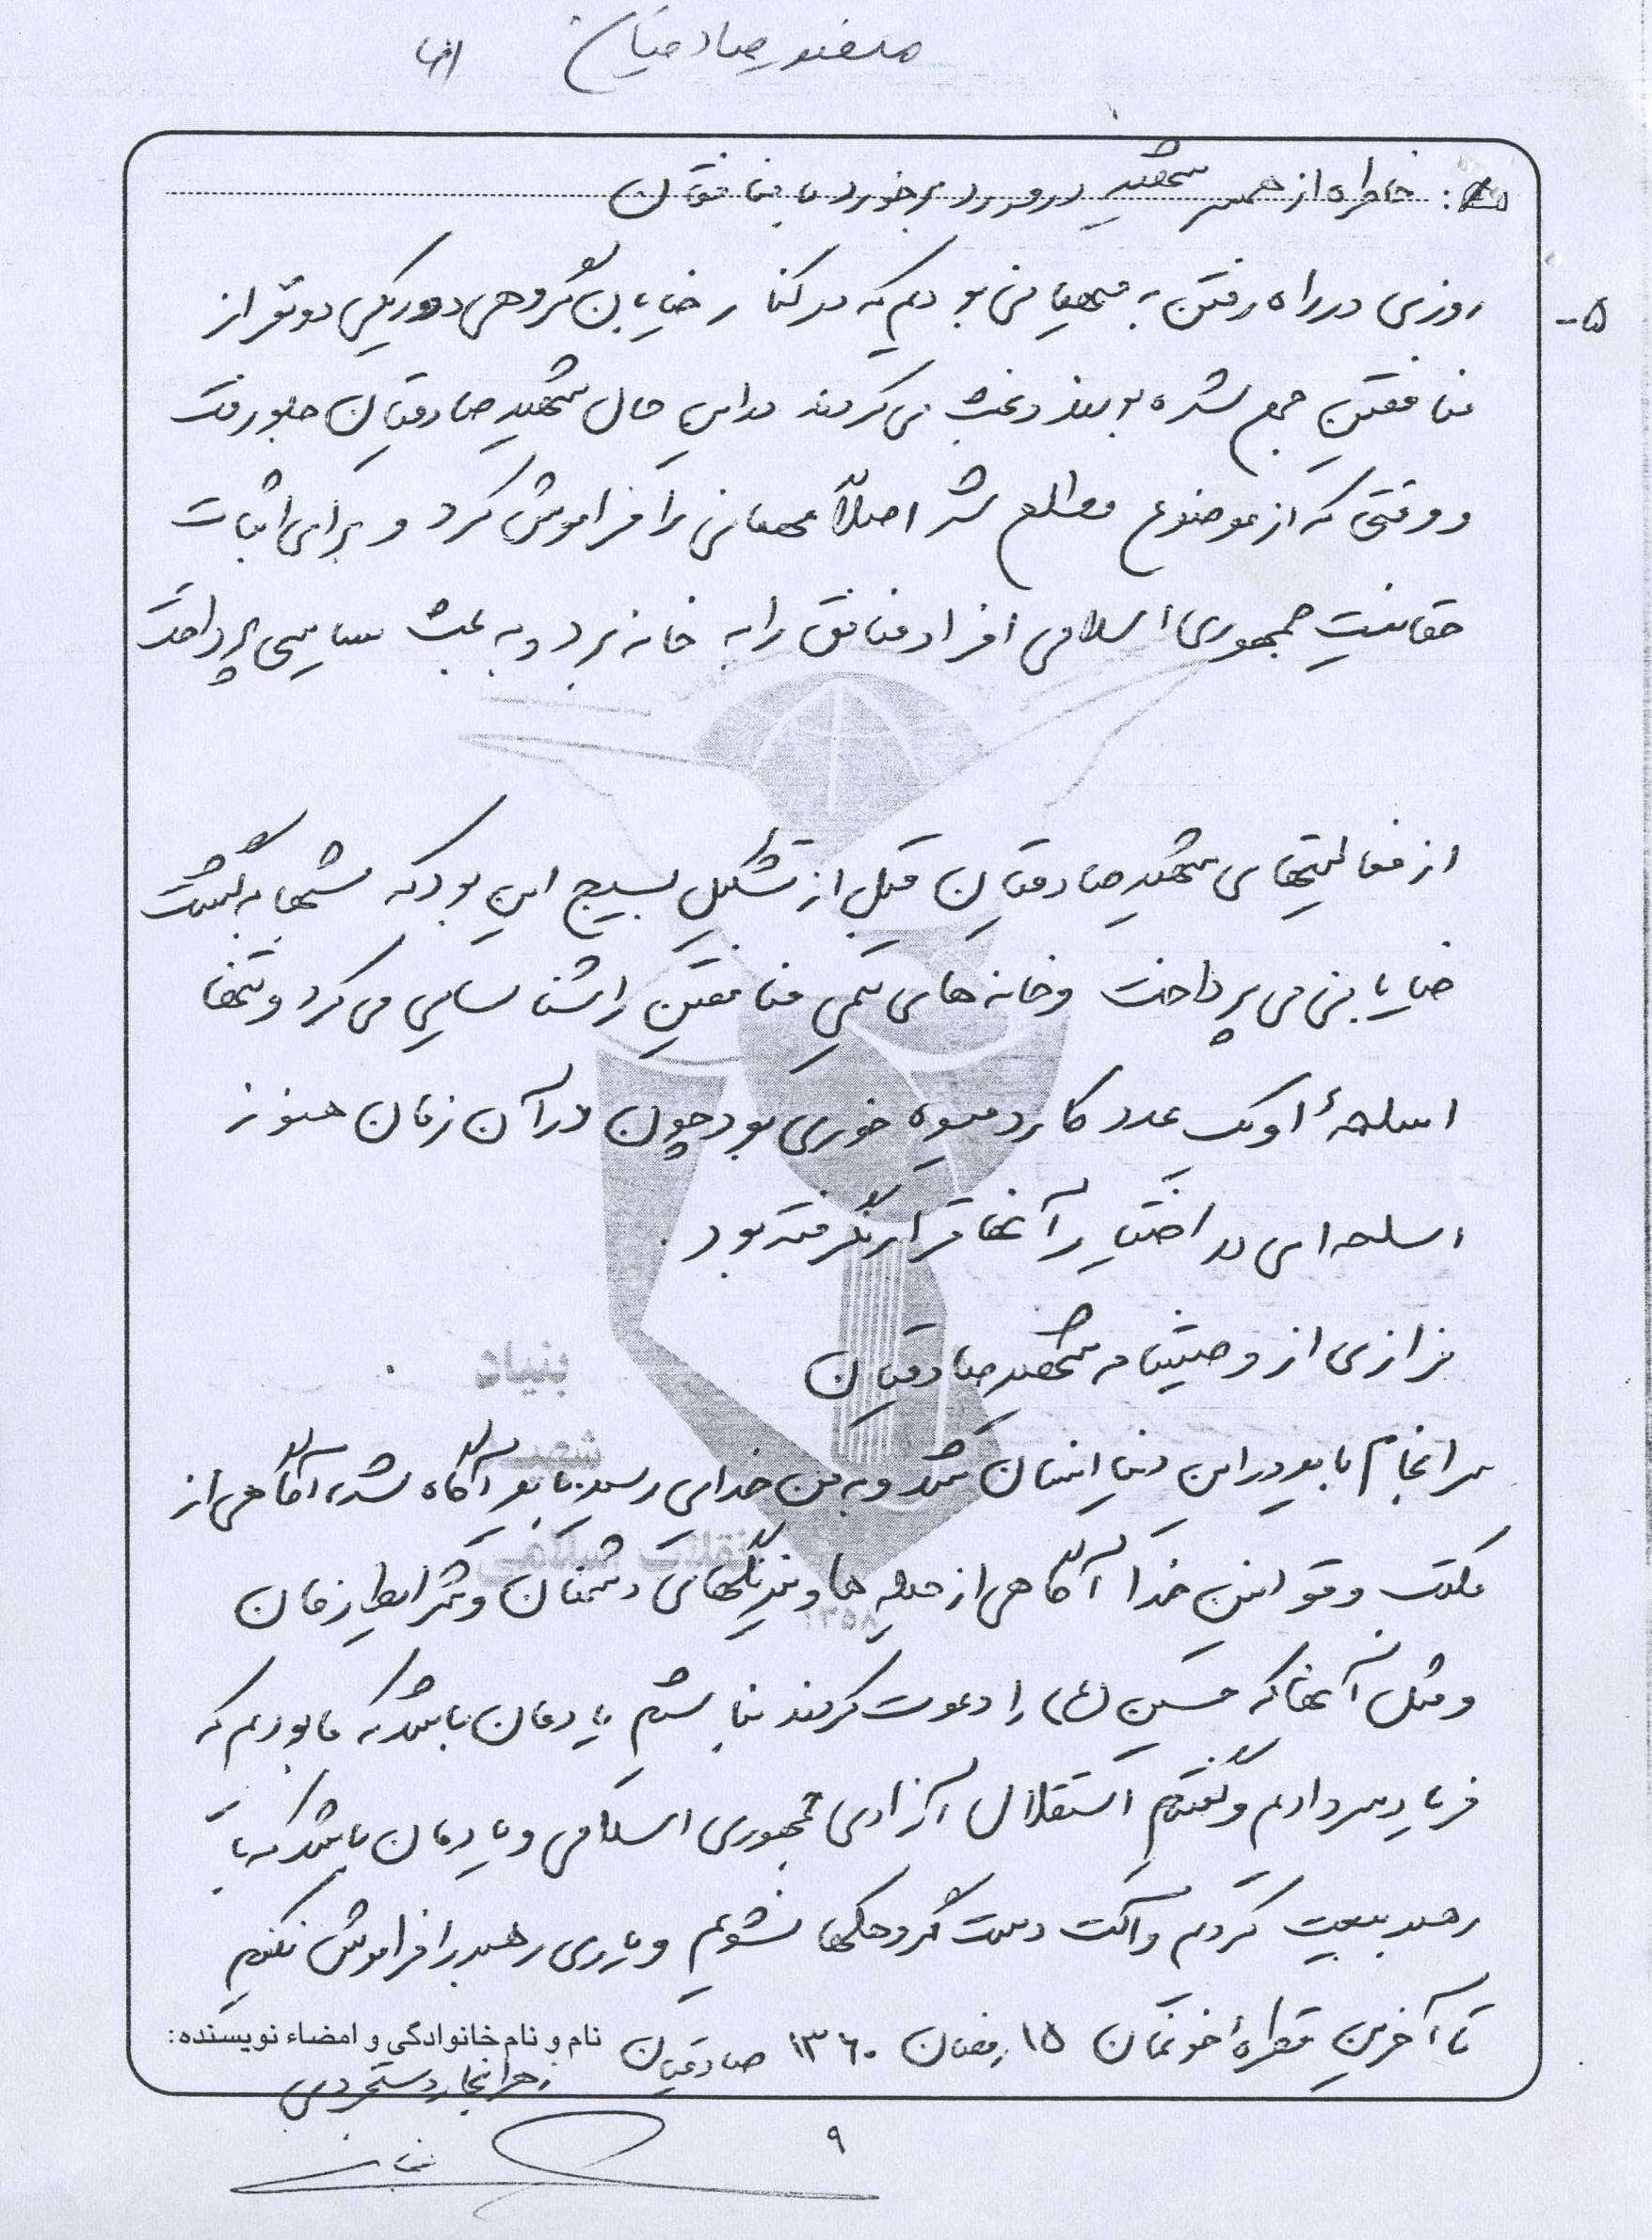 صادقیان
خاطره از همسر شهید در مورد برخورد با منافقان
۵-
روزی در راه رفتن به میهمانی بودیم که در کنار خیابان گروهی دور یکی دو نفر از
منافقین جمع شده بودند و بحث می کردند در این حال شهید صادقیان جلو رفت
و وقتی که از موضوع مطلع شد اصلاً مهمانی را فراموش کرد و برای اثبات
حقانیت جمهوری اسلامی افراد منافق را به خانه برد و به بحث سیاسی پرداخت
از فعالیتهای شهید صادقیان قبل از تشکیل بسیج این بود که شبها به گشت
خیابانی می پرداخت و خانه های تیمی منافقین را شناسایی می کرد و تنها
اسلحهٔ او یک عدد کارد میوه خوری بود چون در آن زمان هنوز
اسلحه ای در اختیار آنها قرار نگرفته بود.
فرازی از وصیتنامه شهید صادقیان
سرانجام باید در این دنیا انسان شد و به من خدایی رسید باید آگاه شد، آگاهی از
مکتب و قوانین خدا آگاهی از حیله ها و نیرنگهای دشمنان و شرایط زمان
و مثل آنها که حسین (ع) را دعوت کردند نباشیم یادمان باشد که ما بودیم که
فریاد سر دادیم و گفتیم استقلال آزادی جمهوری اسلامی و یادمان باشد که با
رهبر بیعت کردیم و آلت دست گروهکها نشویم و یاری رهبر را فراموش نکنیم
تا آخرین قطرهٔ خونمان ۱۵ رمضان ۱۳۶۰ صادقیان
نام و نام خانوادگی و امضاء نویسنده:
زهرا نجار دستجردی
۹
بنیاد
شهید
انقلاب اسلامی
۱۳۵۸